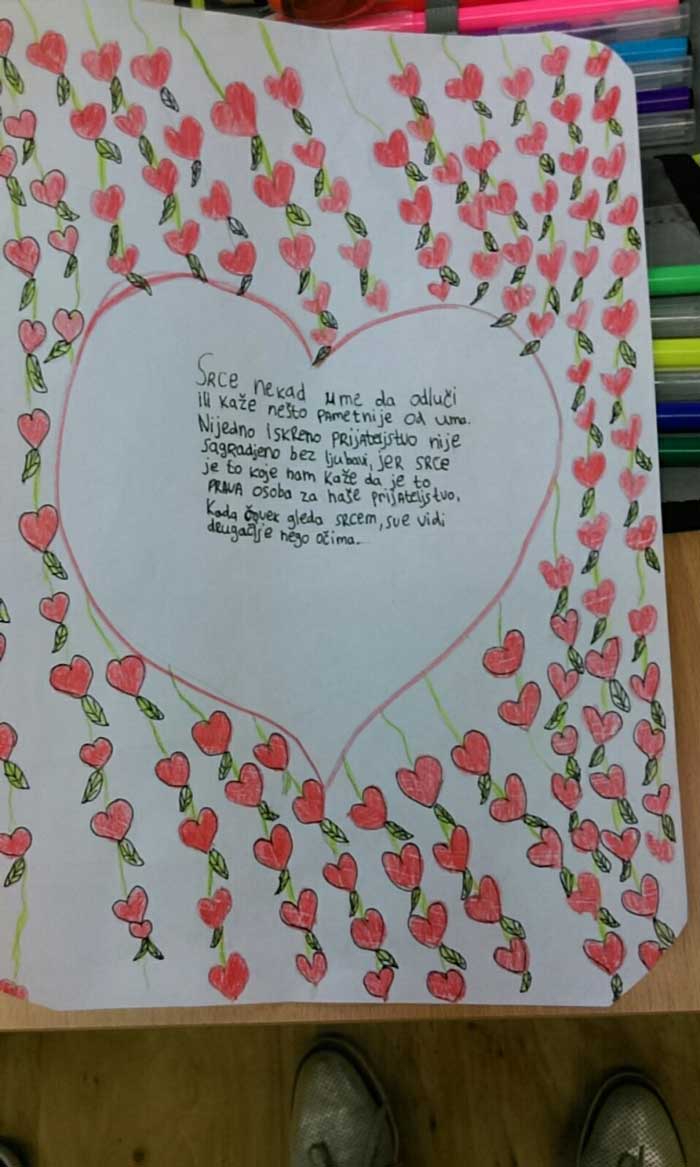 SRCE nekad ume da odluči
ili kaže nešto pametnije od uma.
Nijedno iskreno prijateljstvo nije
sagradjeno bez ljubavi, jer srce
je to koje nam kaže da je to
PRAVA osoba za naše prijateljstvo.
Kada čovek gleda srcem, sve vidi
drugačije nego očima...